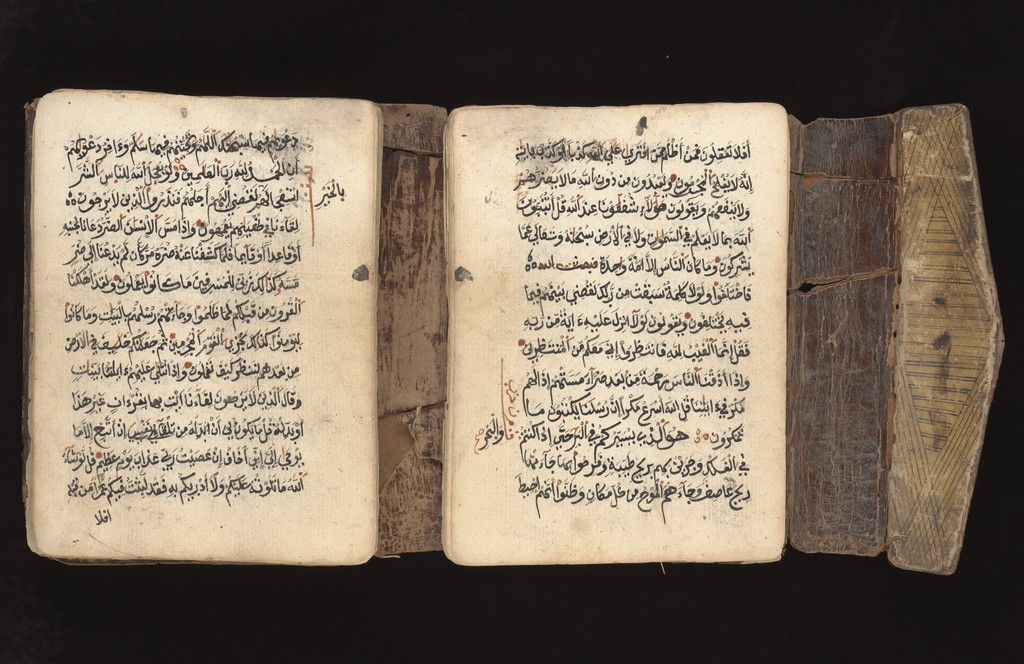 دعويهم فيها سبحنك اللهم وتحيتهم فيها سلم وءاخر دعويهم
أن الحمد لله رب العلمين ولو يعجل الله للناس الشر
استعجالهم لقضي إليهم أجلهم فنذر الذين لا يرجون
بالخير
لقاءنا في طغينهم يعمهون وإذا مس الإنسن الضر دعانا لجنبه
أو قاعدا أو قائما فلما كشفنا عنه ضره مر كأن لم يدعنا إلى ضر
مسه كذلك زين للمسرفين ما كانوا يعملون ولقد أهلكنا
القرون من قبلكم لما ظلموا وجاءتهم رسلهم بالبينت وما كانوا
ليؤمنوا كذلك نجزي القوم المجرمين ثم جعلنكم خليف في الأرض
من بعدهم لننظر كيف تعملون وإذا تتلى عليهم ءاياتنا بينت
قال الذين لا يرجون لقاءنا ائت بقرءان غير هذا
أو بدله قل ما يكون لي أن أبدله من تلقاء نفسي إن أتبع إلا ما
يوحى إلي إني أخاف إن عصيت ربي عذاب يوم عظيم قل لو شاء
الله ما تلوته عليكم ولا أدريكم به فقد لبثت فيكم عمرا من قبله
افلا
أفلا تعقلون فمن أظلم ممن افترى على الله كذبا أو كذب بأيته
إنه لا يفلح المجرمون ويعبدون من دون الله ما لا يضرهم
ولا ينفعهم ويقولون هؤلاء شفعؤنا عند الله قل أتنبؤن
الله بما لا يعلم في السموت ولا في الأرض سبحنه وتعالى عما
يشركون وما كان الناس إلا أمة واحدة
فاختلفوا ولولا كلمة سبقت من ربك لقضي بينهم فيما
فيه يختلفون ويقولون لولا أنزل عليه ءاية من ربه
فقل إنما الغيب لله فانتظروا إني معكم من المنتظرين
وإذا أذقنا الناس رحمة من بعد ضراء مستهم إذا لهم
مكر في ءاياتنا قل الله أسرع مكرا إن رسلنا يكتبون ما
تمكرون هو الذي يسيركم في البر حتى إذا كنتم
والبحر صح
في الفلك وجرين بهم بريح طيبة وفرحوا بها جاءتها
ريح عاصف وجاءهم الموج من كل مكان وظنوا أنهم أحيط